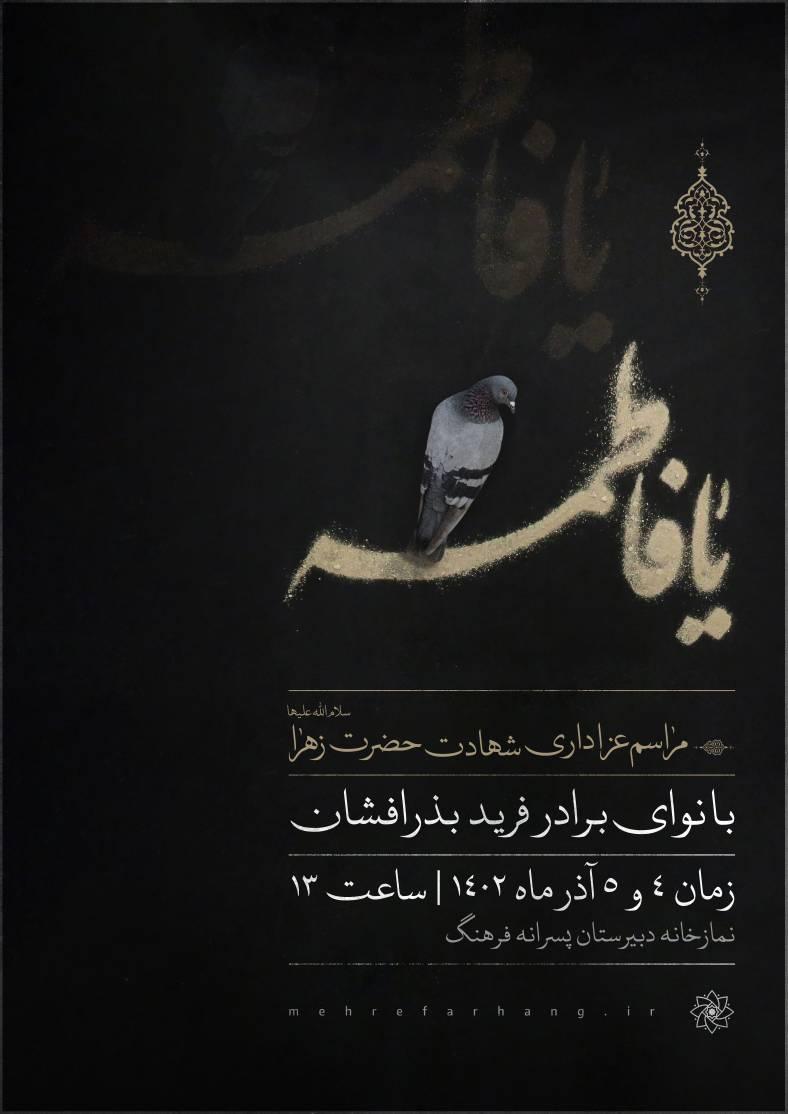 یا فاطمه
یا فاطمه
سلام الله علیها
مراسم عزاداری شهادت حضرت زهرا
با نوای برادر فرید بذرافشان
زمان ۴ و ۵ آذر ماه ۱۴۰۲ | ساعت ۱۳
نمازخانه دبیرستان پسرانه فرهنگ
mehrefarhang.ir